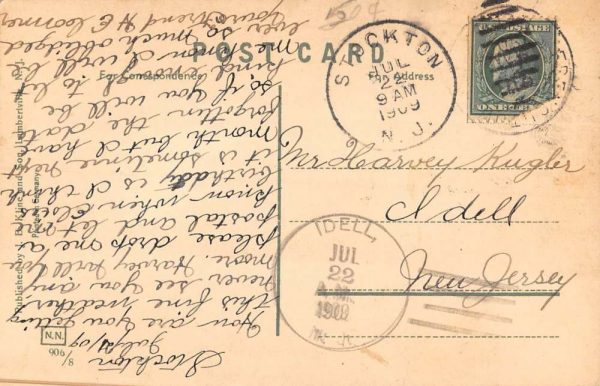 POST CARD
For Correspondence
For Address
STOCKTON
JUL
22
9 AM
1909
N. J.
ONE CENT
Mr Harvey Kugler
Idell
New Jersey
IDELL,
JUL
22
A.M.
1909
N. J.
Stockton
July 21/09
How are you getting
this fine weather.
never see you any
moore. Harvey will you
please drop one a
postal and let
know when
birthday is I think
it is sometime next
month but I have
forgotten the date
so if you will be
kind enough to let
me know I will be
ever so much obliged
your friend H E
Published by Kline and Son, Lambertville, N. J.
Germany
N.N.
906/8